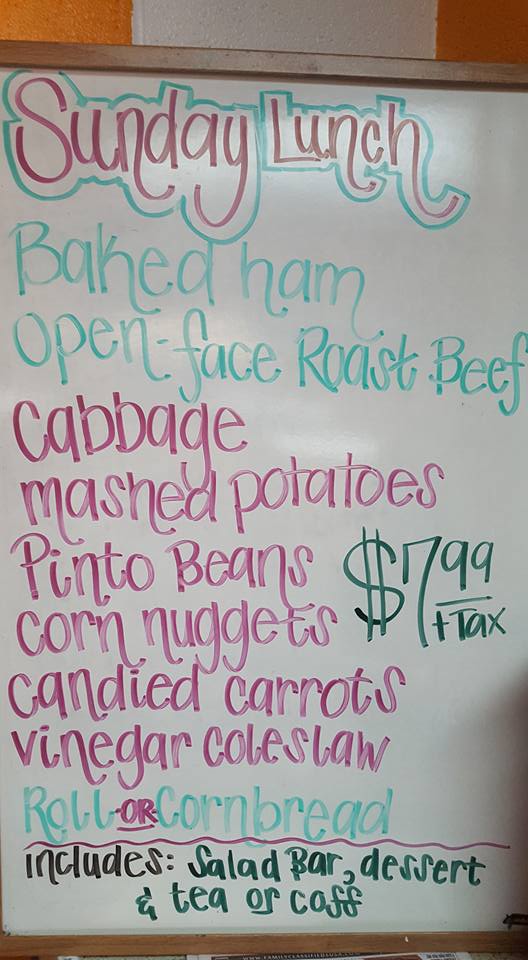 Sunday Lunch
Baked ham
Open-face Roast Beef
Cabbage
mashed potatoes
Pinto Beans
corn nuggets
$7.99
+ Tax
candied carrots
vinegar coleslaw
Roll -OR- Cornbread
includes: Salad Bar, dessert
& tea or coff